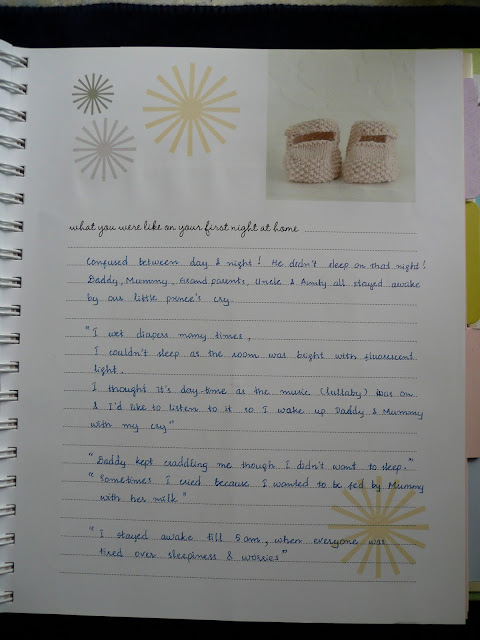 what you were like on your first night at home
Confused between day & night! He didn't sleep on that night!
Daddy, Mummy, Grand parents, Uncle & Aunty all stayed awake
by our little prince's cry.
"I wet diapers many times,
I couldn't sleep as the room was bright with fluorescent
light.
I thought it's day-time as the music (lullaby) was on
& I'd like to listen to it so I wake up Daddy & Mummy
with my cry"
"Daddy kept craddling me though I didn't want to sleep."
"Sometimes I cried because I wanted to be fed by Mummy
with her milk"
"I stayed awake till 5am, when everyone was
tired over sleepiness & worries"